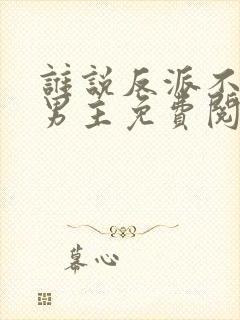 誰說反派不
男主免費閱
慕心